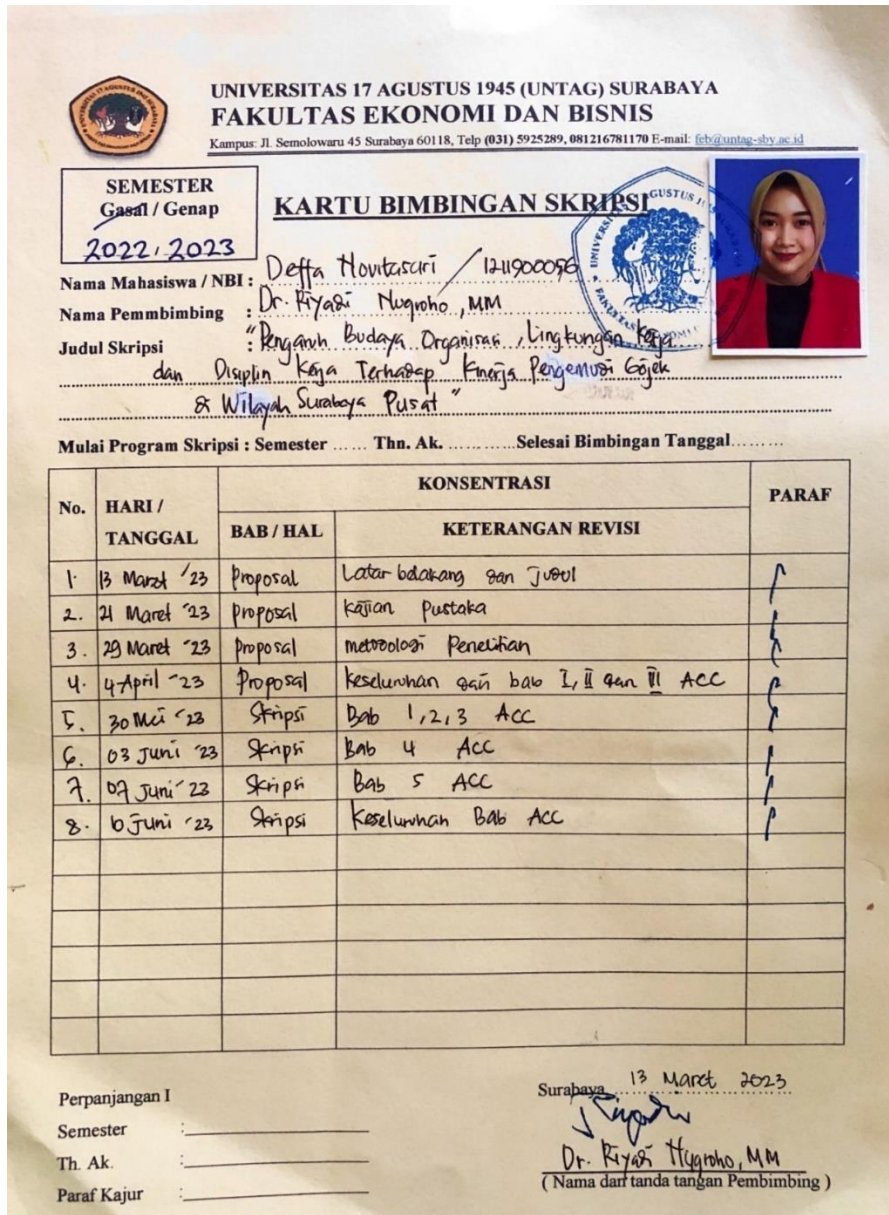 UNIVERSITAS 17 AGUSTUS 1945 (UNTAG) SURABAYA
FAKULTAS EKONOMI DAN BISNIS
Kampus: Jl. Semolowaru 45 Surabaya 60118, Telp (031) 5925289, 081216781170 E-mail: feb@untag-sby.ac.id
SEMESTER
Gasal / Genap
2022/2023
KARTU BIMBINGAN SKRIPSI
Nama Mahasiswa / NBI : Deffa Novitasari / 1211900056
Nama Pemmbimbing : Dr. Riyadi Nugroho, MM
Judul Skripsi : "Pengaruh Budaya Organisasi, Lingkungan Kerja
dan Disiplin Kerja Terhadap Kinerja Pengemudi Gojek
di Wilayah Surabaya Pusat"
Mulai Program Skripsi : Semester ...... Thn. Ak. ............ Selesai Bimbingan Tanggal ........
No. HARI / TANGGAL KONSENTRASI PARAF
BAB / HAL KETERANGAN REVISI
1. 13 Maret '23 Proposal Latar belakang dan Judul
2. 21 Maret '23 Proposal Kajian Pustaka
3. 29 Maret '23 Proposal metodologi Penelitian
4. 4 April '23 Proposal Keseluruhan dari bab I, II dan III ACC
5. 30 Mei '23 Skripsi Bab 1,2,3 ACC
6. 03 Juni '23 Skripsi Bab 4 ACC
7. 07 Juni '23 Skripsi Bab 5 ACC
8. Juni '23 Skripsi Keseluruhan Bab ACC
Perpanjangan I
Semester :
Th. Ak. :
Paraf Kajur :
Surabaya, 13 Maret 2023
Dr. Riyadi Nugroho, MM
( Nama dan tanda tangan Pembimbing )